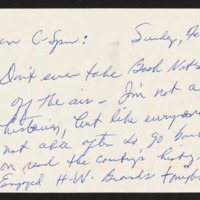 C-Span: Sunday,
Don't ever take Book Notes
off the air - I'm not a
historian, but like everyone
not able often to go
on read the country's
Enjoyed H.W. Brands